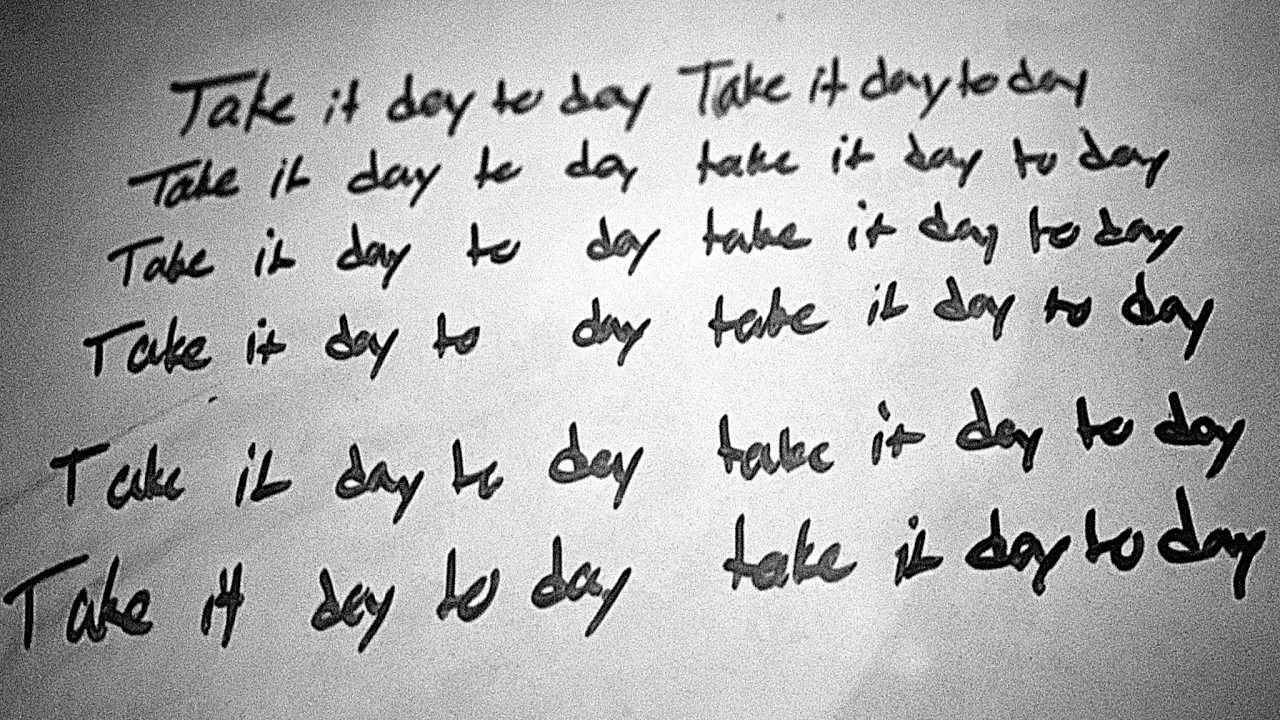 Take it day to day Take it day to day
Take it day to day take it day to day
Take it day to day take it day to day
Take it day to day take it day to day
Take it day to day take it day to day
Take it day to day take it day to day